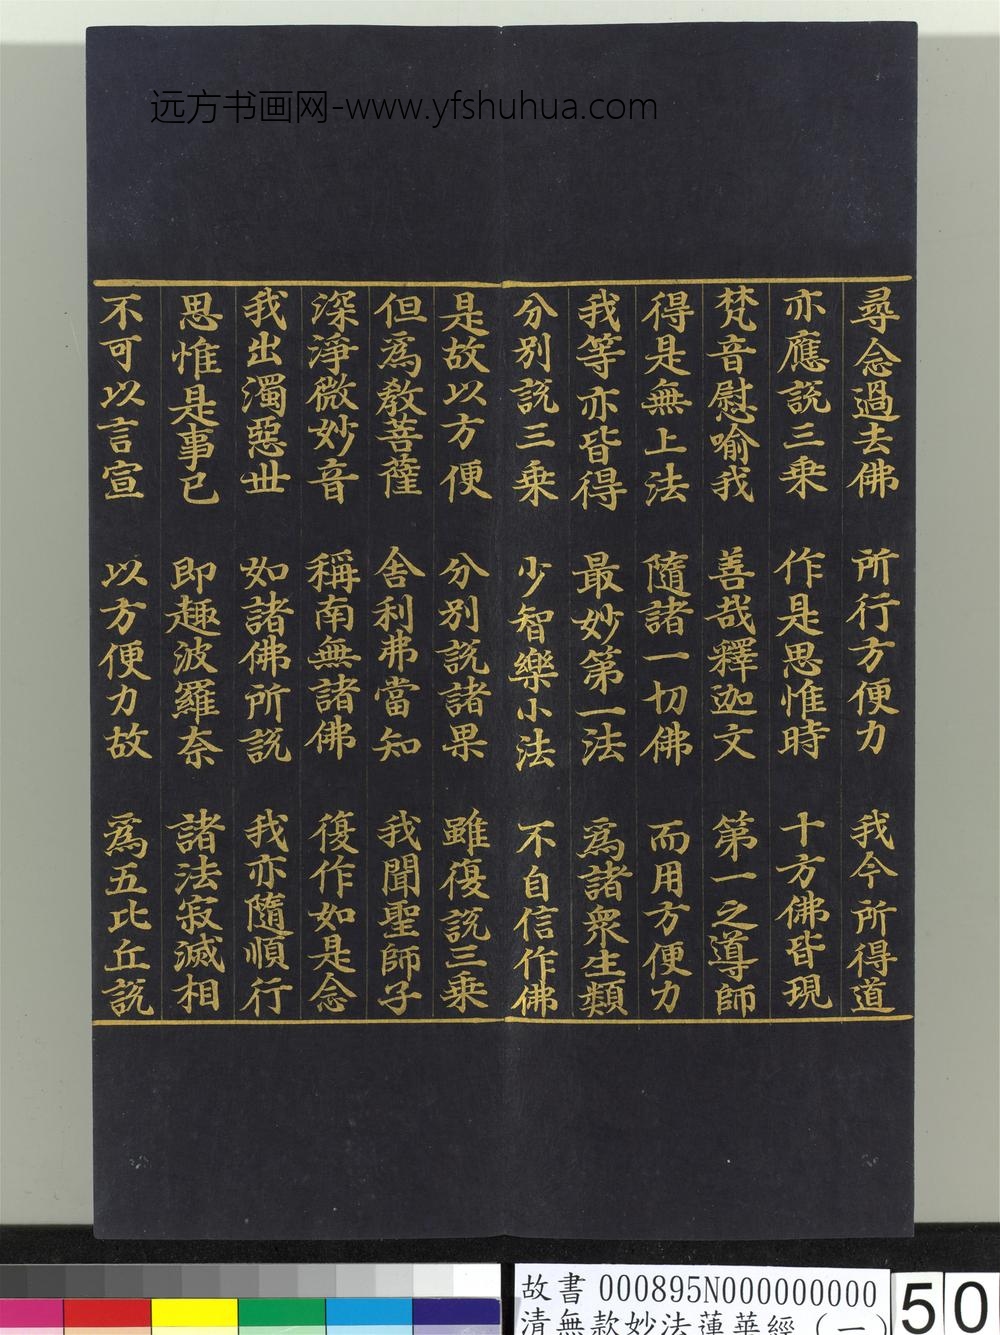 远方书画网-www.yfshuhua.com
尋念過去佛 所行方便力 我今所得道
亦應說三乘 作是思惟時 十方佛皆現
梵音慰喻我 善哉釋迦文 第一之導師
得是無上法 隨諸一切佛 而用方便力
我等亦皆得 最妙第一法 為諸眾生類
分別說三乘 少智樂小法 不自信作佛
是故以方便 分別說諸果 雖復說三乘
但為教菩薩 舍利弗當知 我聞聖師子
深淨微妙音 稱南無諸佛 復作如是念
我出濁惡世 如諸佛所說 我亦隨順行
思惟是事已 即趣波羅奈 諸法寂滅相
不可以言宣 以方便力故 為五比丘說
故書 000895N000000000
清無款妙法蓮華經(一)
50